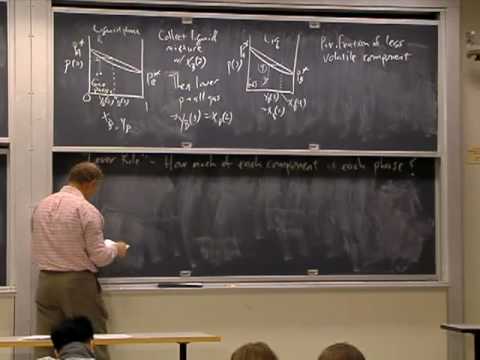 Liquid phase
P_A*
p(1)
P_B*
Gas phase
0
y_B(1) x_B(1)
x_B, y_B
Collect liquid
mixture
w/ x_B(2)
Then lower
p → all gas
→ y_B(3) = x_B(2)
Liq
P_A*
p(1)
P_B*
gas
y_B(3)
x_B(1)
Pur. fraction of less
volatile component
"Lever Rule" - How much of each component in each phase?